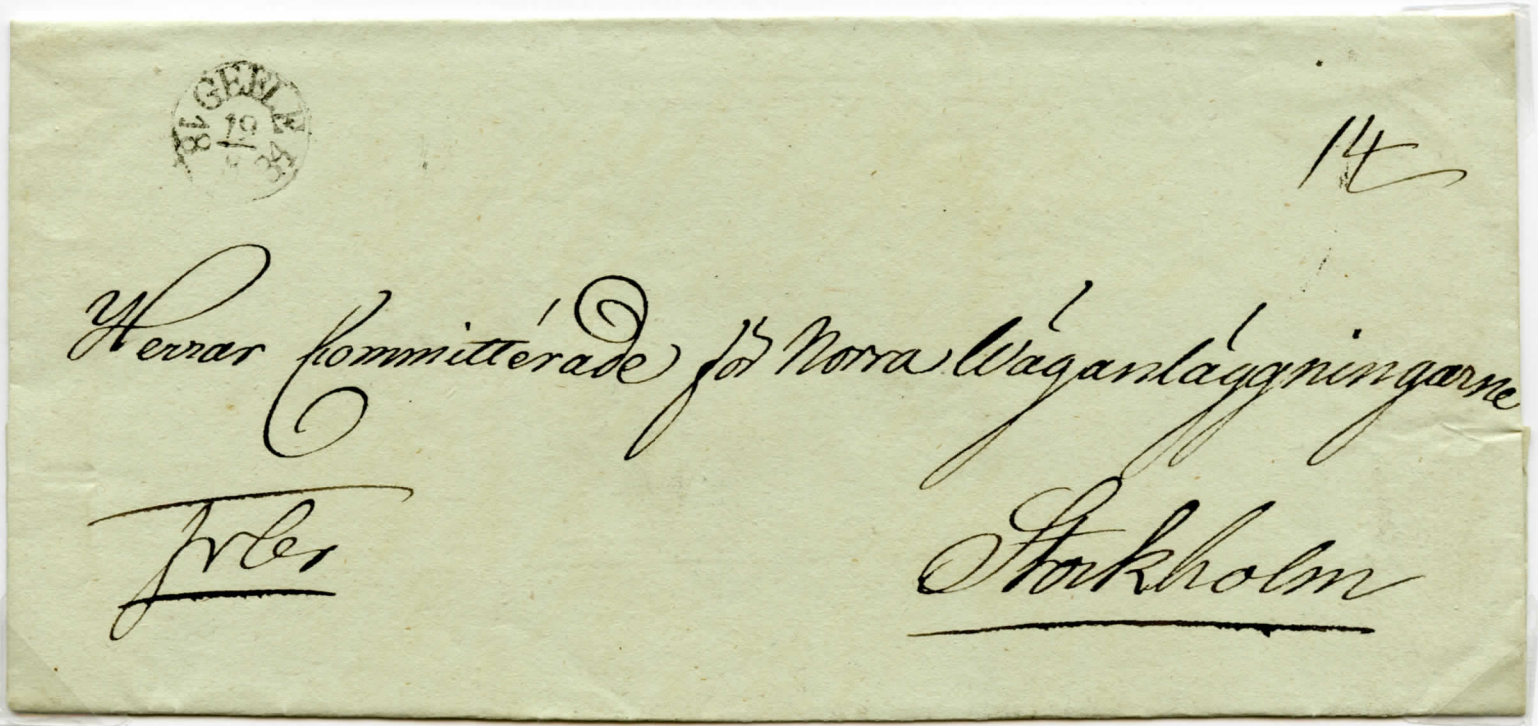 GEFLE
19
18
14
Herrar Committérade för Norra Wäganläggningarne
Frbr
Stockholm